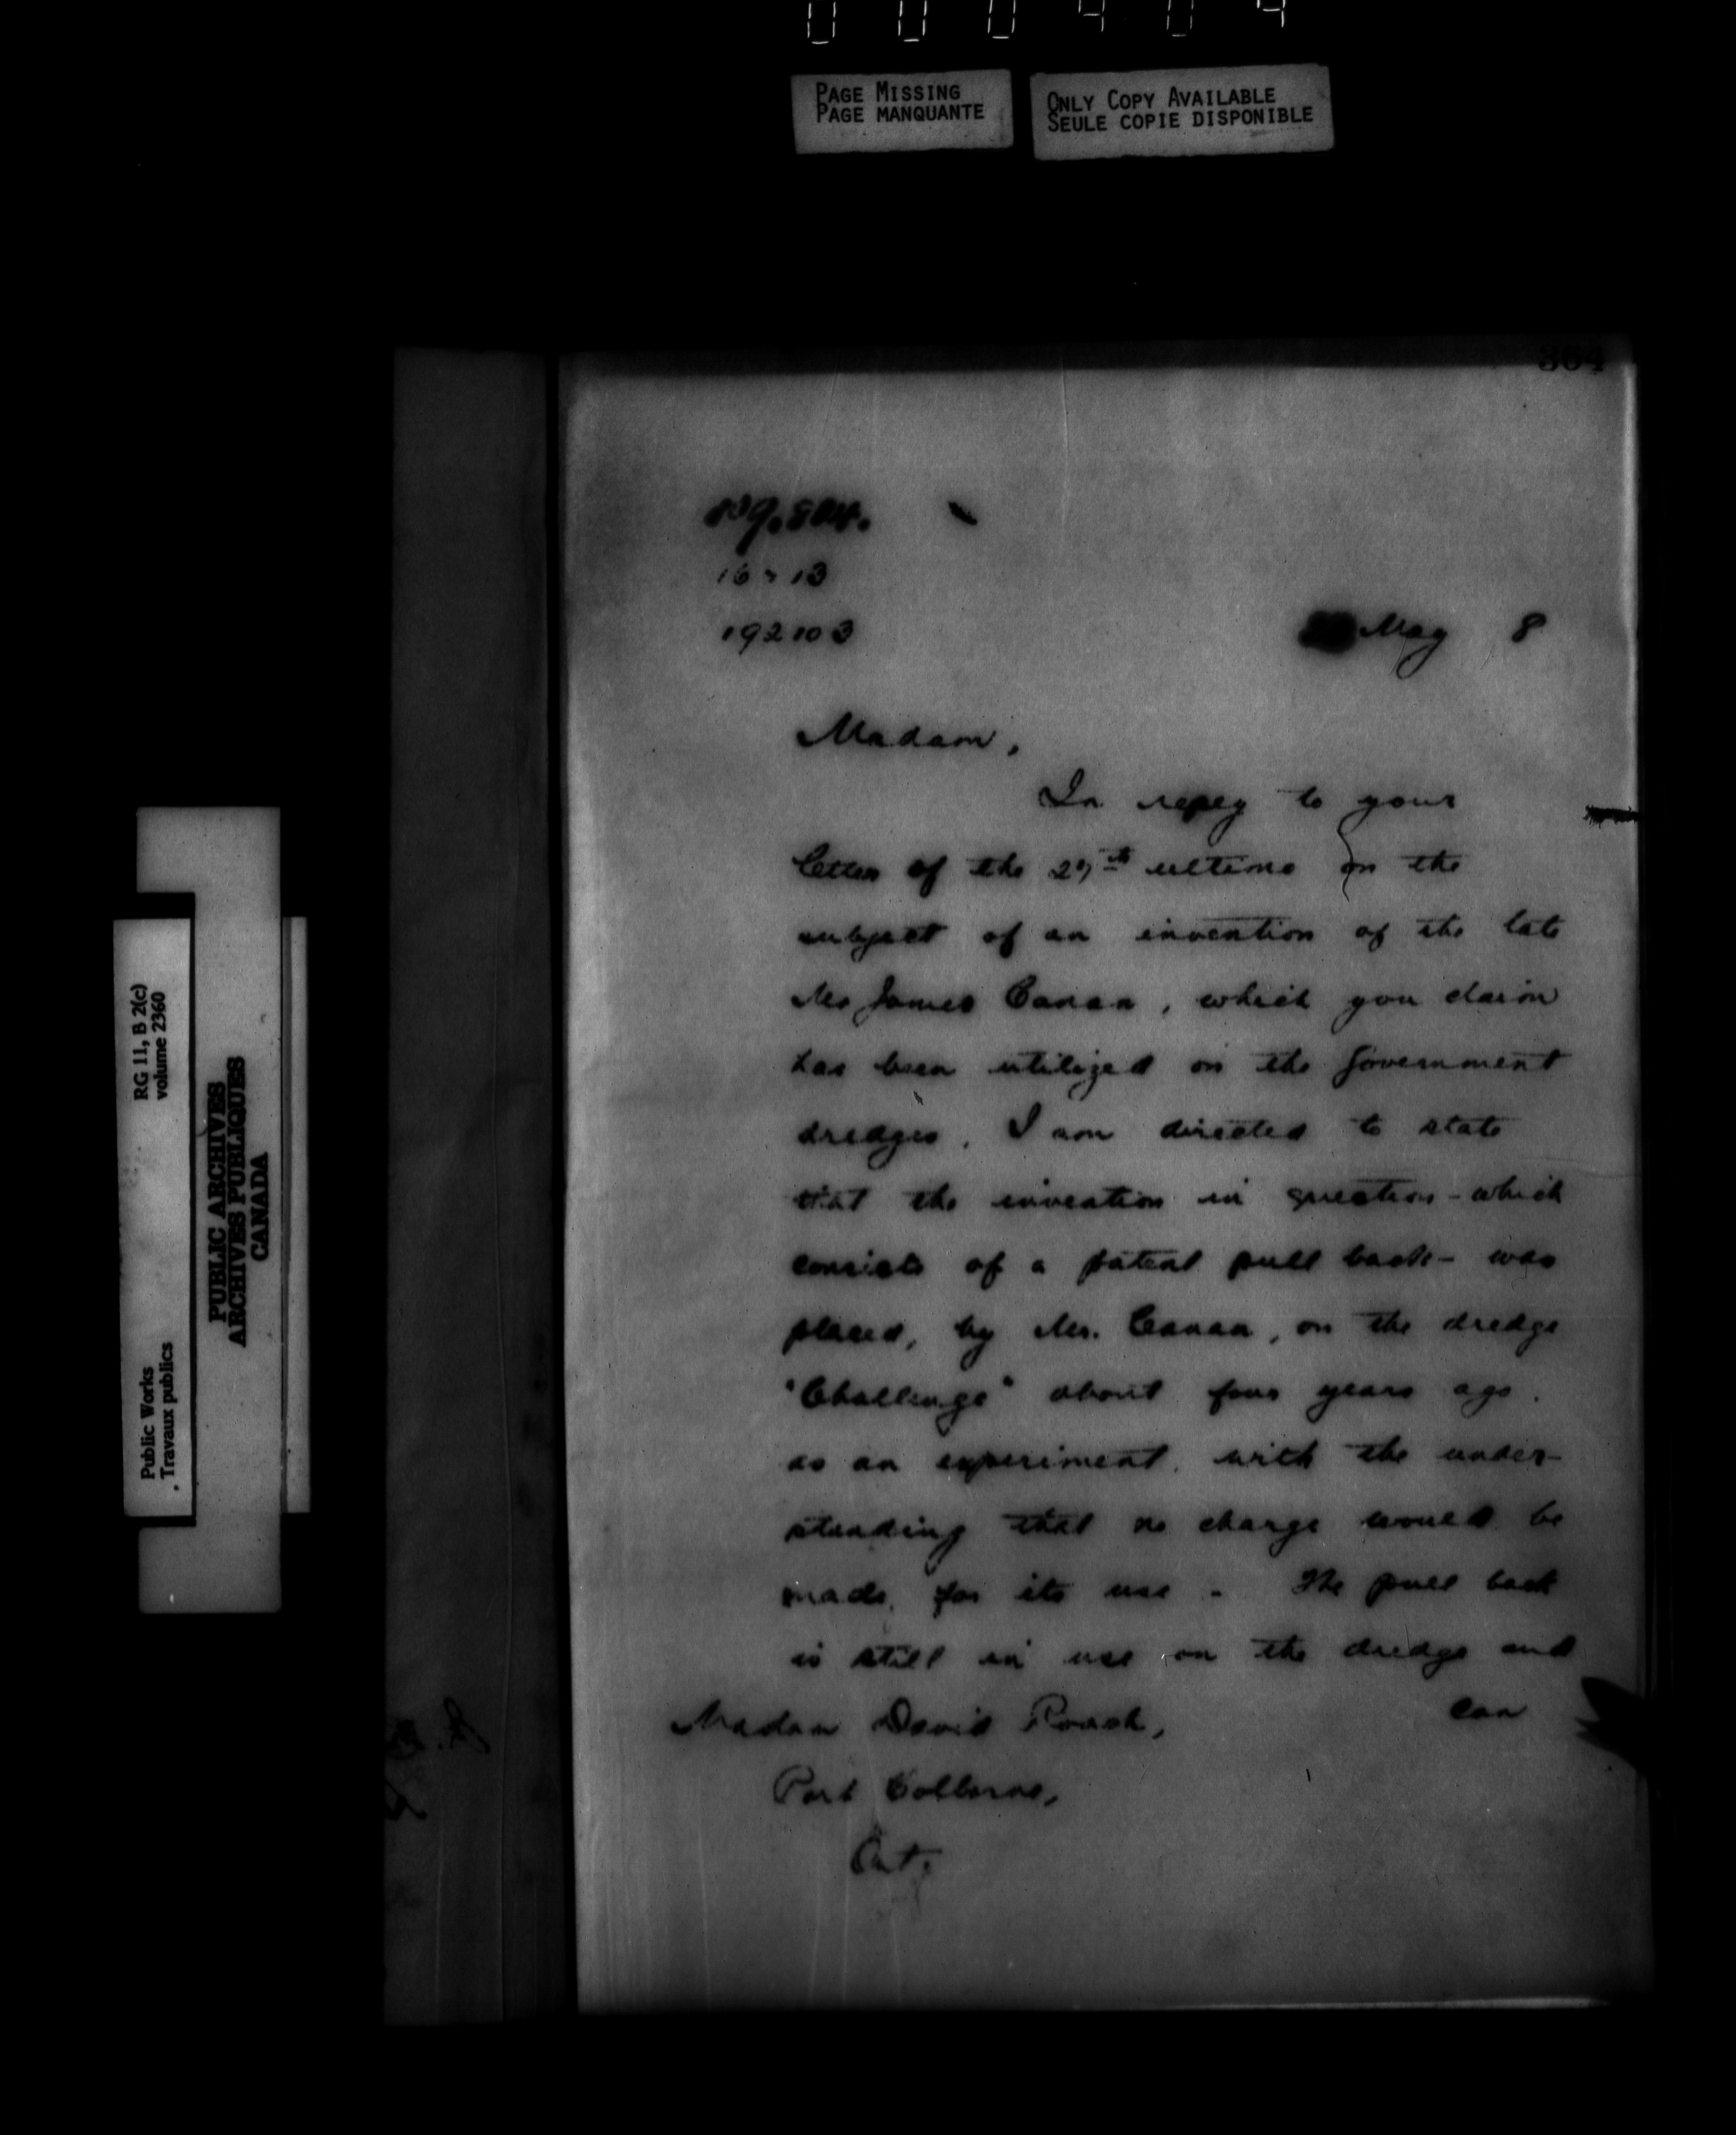 PAGE MISSING
PAGE MANQUANTE
ONLY COPY AVAILABLE
SEULE COPIE DISPONIBLE
364
192103
May 8
Madam,
In reply to your
letter of the 27th ultimo on the
subject of an invention of the late
Mr James Canan, which you claim
has been utilized on the Government
dredges, I am directed to state
that the invention in question - which
consists of a patent pull back - was
placed, by Mr. Canan, on the dredge
"Challenge" about four years ago.
as an experiment, with the under-
standing that no charge would be
made, for its use - The pull back
is still in use on the dredge and
can
Madam David Roach,
Port Colborne,
Ont.
RG 11, B 2(c)
volume 2360
Public Works
Travaux publics
PUBLIC ARCHIVES
ARCHIVES PUBLIQUES
CANADA